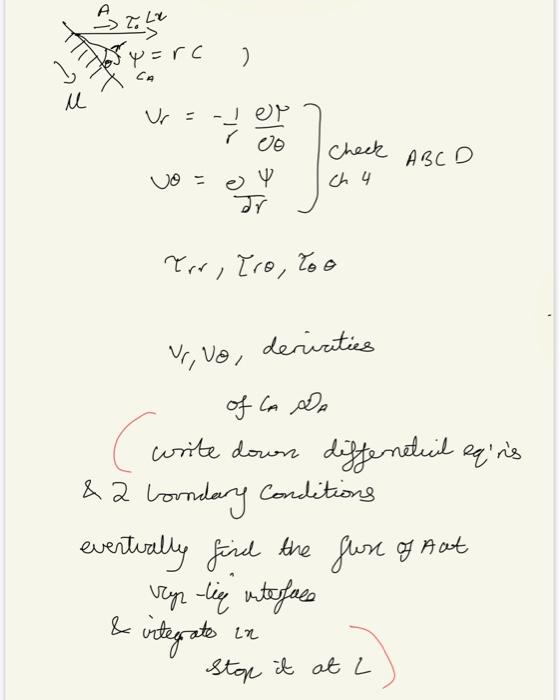 A
→ τ. Lx
ψ = r C )
CA
U
Vr = -1/r ∂ψ/∂θ
Vθ = ∂ψ/∂r
check ABCD
Ch 4
τrr, τrθ, τθθ
Vr, Vθ, derivities
of CA DA
write down differnetial eq'ns
& 2 boundary Conditions
eventually find the flux of A at
vap-liq interface
& integrate Lx
stop it at L